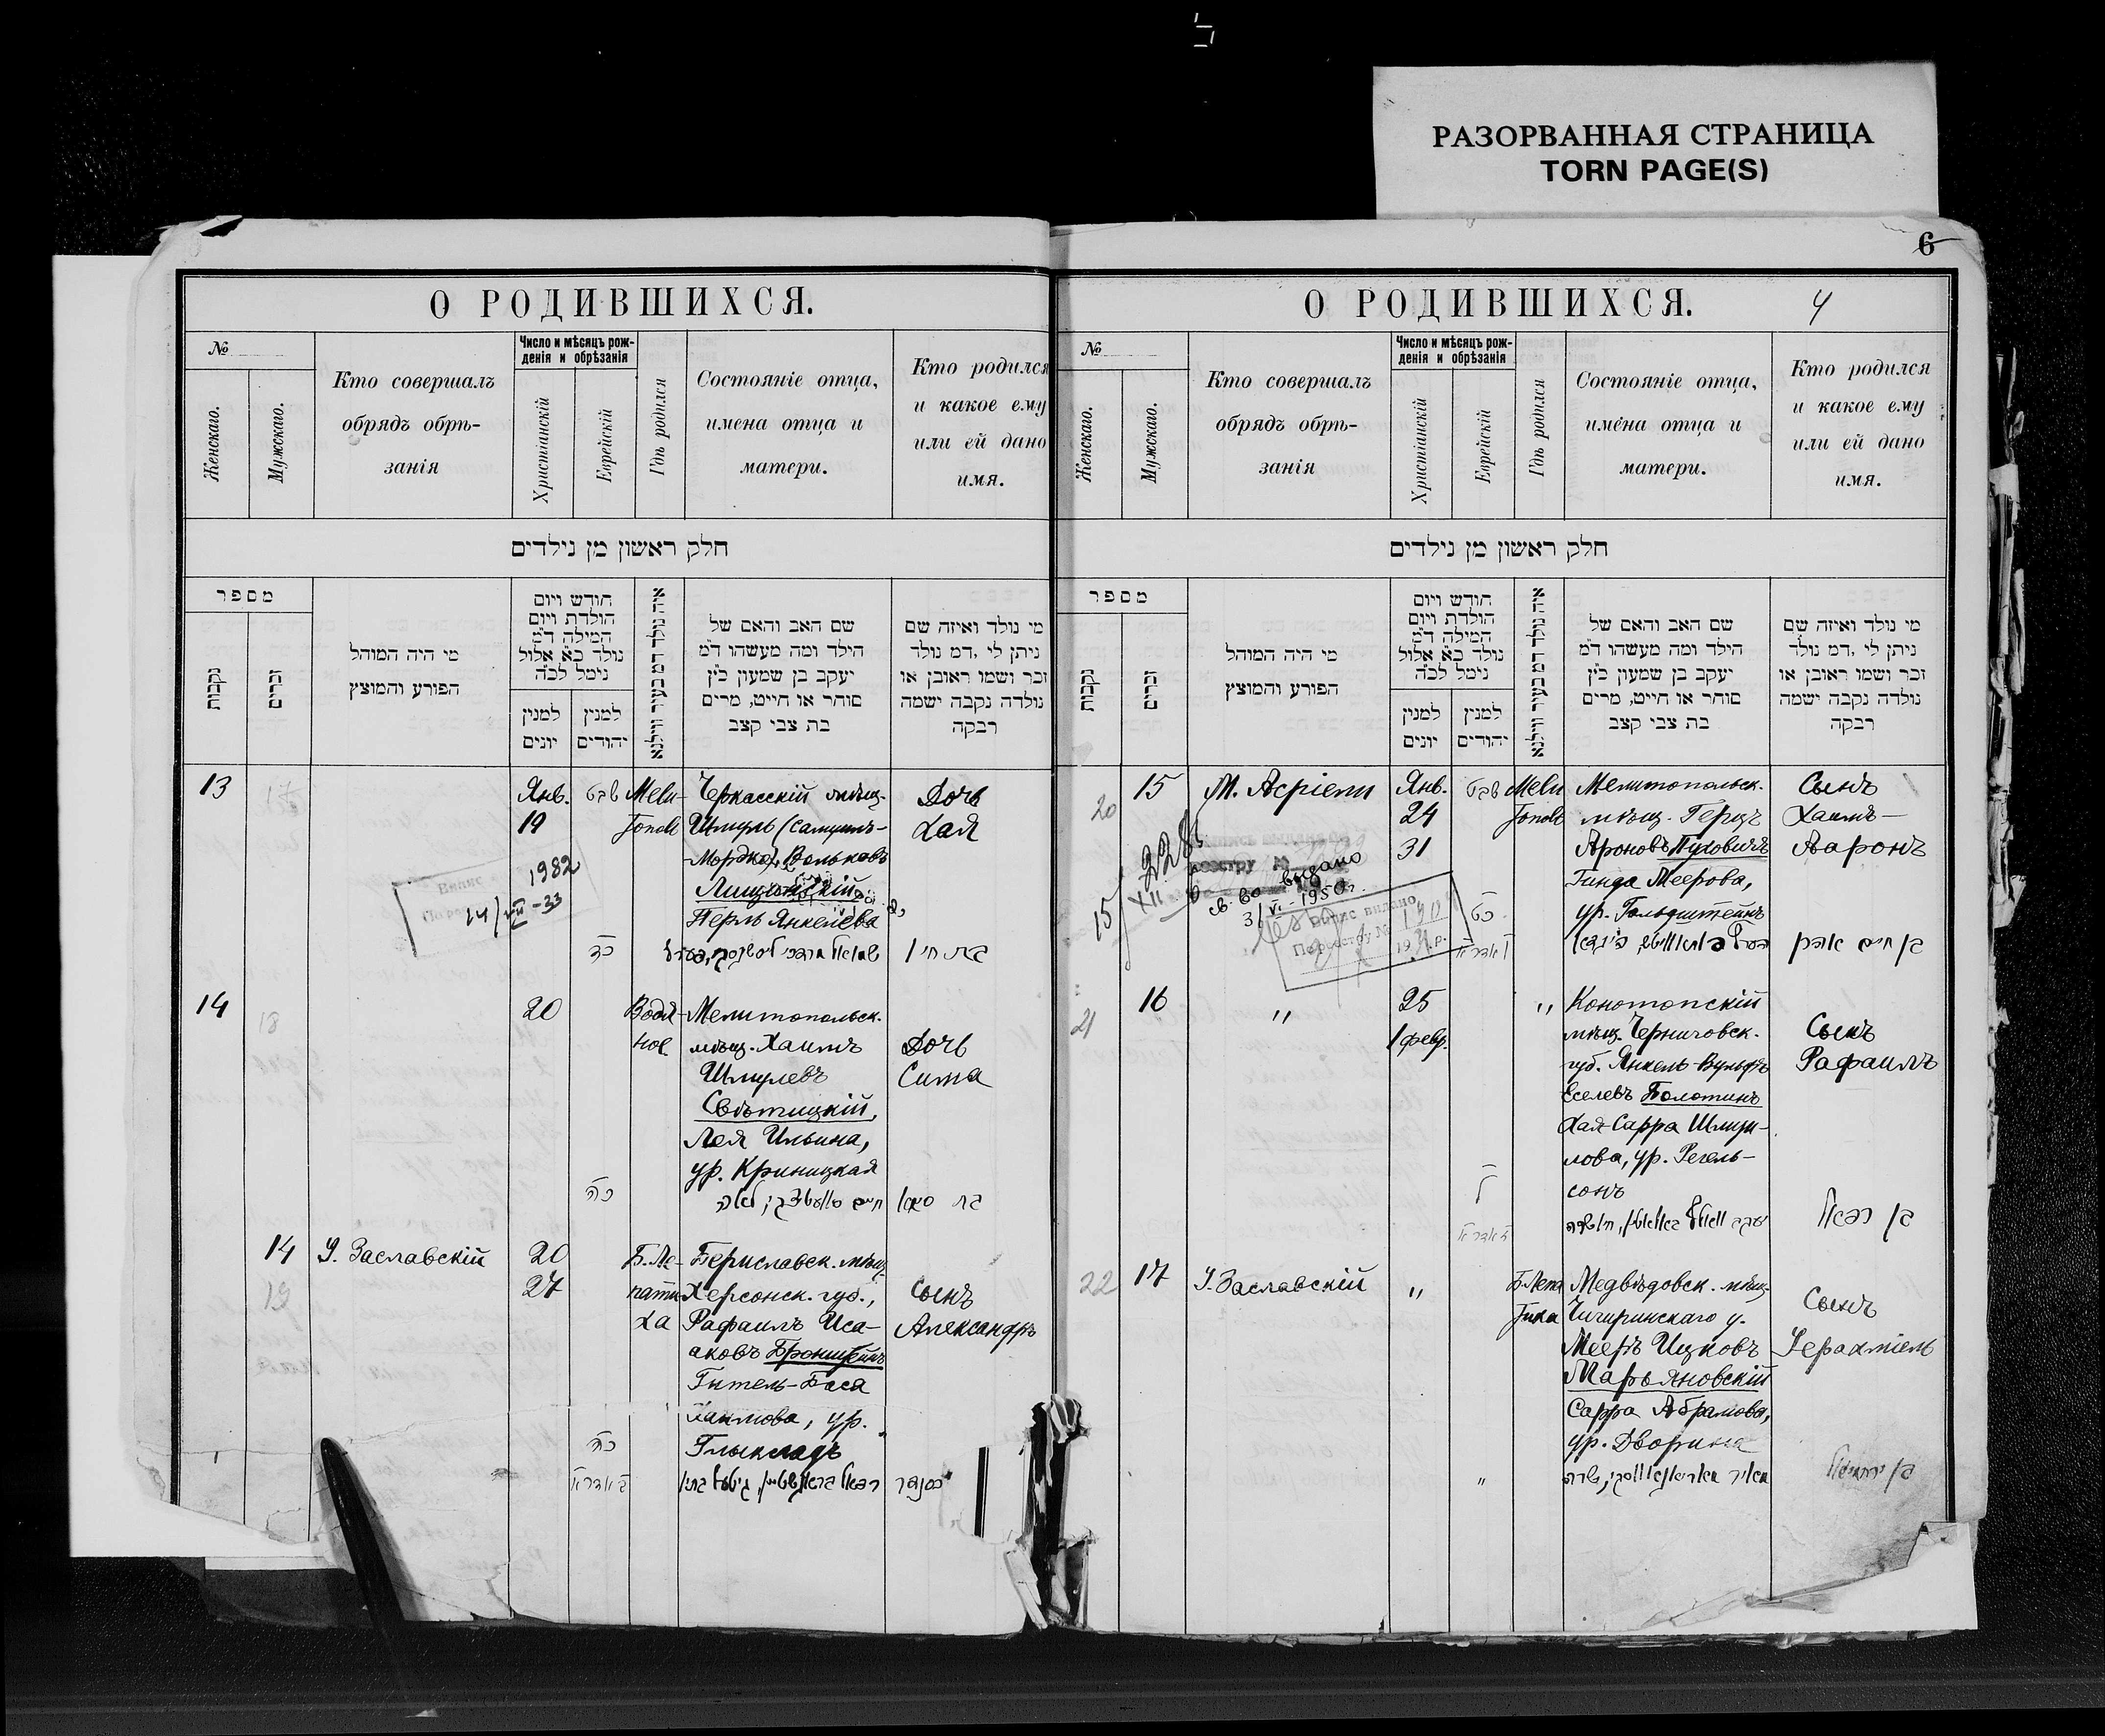 РАЗОРВАННАЯ СТРАНИЦА
TORN PAGE(S)
О РОДИВШИХСЯ.
№
Женскаго.
Мужскаго.
Кто совершалъ
обрядъ обрѣ-
занія
Число и мѣсяцъ рож-
денія и обрѣзанія
Христіанскій
Еврейскій
Гдѣ родился
Состояніе отца,
имена отца и
матери.
Кто родился
и какое ему
или ей дано
имя.
חלק ראשון מן נילדים
מספר
נקבות
זכרים
מי היה המוהל
הפורע והמוצץ
חודש ויום
הולדת ויום
המילה ד״מ
נולד כ״א אלול
נימל לכ״ה
למנין
יונים
למנין
יהודים
איה נולד דמ בעיר ווילנא
שם האב והאם של
הילד ומה מעשהו ד״מ
יעקב בן שמעון כ״ץ
סוחר או חייט, מרים
בת צבי קצב
מי נולד ואיזה שם
ניתן לי ,דמ נולד
זכר ושמו ראובן או
נולדה נקבה ישמה
רבקה
13
Янв.
19
שבט
כד
Мели-
тополь
Черкасскій мѣщ.
Шмуль (Самуилъ-
Мордко) Вольковъ
Лищинскій
Перль Янкелева
Дочь
Хая
בת חי׳
1982
14/VIII-33
14
20
כה
Водя-
ное
Мелитопольск.
мѣщ. Хаимъ
Шмулевъ
Свѣтицкій,
Лея Ильина,
ур. Криницкая
Дочь
Сима
14
У. Заславскій
20
27
כה
Б. Ле-
пати-
ха
Бериславск. мѣщ.
Херсонск. губ.,
Рафаилъ Иса-
аковъ Бронштейнъ
Гитель-Бася
Хаимова, ур.
Глыкладъ
Сынъ
Александръ
6
О РОДИВШИХСЯ.
4
№
Женскаго.
Мужскаго.
Кто совершалъ
обрядъ обрѣ-
занія
Число и мѣсяцъ рож-
денія и обрѣзанія
Христіанскій
Еврейскій
Гдѣ родился
Состояніе отца,
имена отца и
матери.
Кто родился
и какое ему
или ей дано
имя.
חלק ראשון מן נילדים
מספר
נקבות
זכרים
מי היה המוהל
הפורע והמוצץ
חודש ויום
הולדת ויום
המילה ד״מ
נולד כ״א אלול
נימל לכ״ה
למנין
יונים
למנין
יהודים
איה נולד דמ בעיר ווילנא
שם האב והאם של
הילד ומה מעשהו ד״מ
יעקב בן שמעון כ״ץ
סוחר או חייט, מרים
בת צבי קצב
מי נולד ואיזה שם
ניתן לי ,דמ נולד
זכר ושמו ראובן או
נולדה נקבה ישמה
רבקה
20
15
М. Асріели
Янв.
24
31
שבט
כט
Мели
тополь
Мелитопольск.
мѣщ. Герцъ
Ароновъ Пуховичъ
Гинда Меерова,
ур. Гольдштейнъ
Сынъ
Хаимъ-
Ааронъ
בן חיים אהרן
св-во выдано
3/VI-1950г.
21
16
"
25
1 февр.
ל
"
Конотопскій
мѣщ. Черниговск.
губ. Янкель-Вульфъ
Еселевъ Болотинъ
Хая-Сарра Шлиои-
лова, ур. Регель-
сонъ
Сынъ
Рафаилъ
בן רפאל
22
17
У. Заславскій
"
"
Б. Лепа
тиха
Медвѣдовск. мѣщ.
Чигиринскаго у.
Мееръ Ицковъ
Марьяновскій
Сарра Абрамова,
ур. Дворина
Сынъ
Іерахміель
בן ירחמיאל